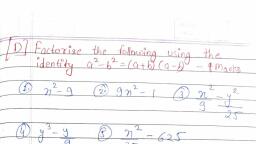 [D] Factorise the following using the
identity a²-b²=(a+b)(a-b) - 4 Marks
① x²-9 ② 9x²-1 ③ x²/9 - y²/25
④ y³-y/9 ⑤ x² - 625